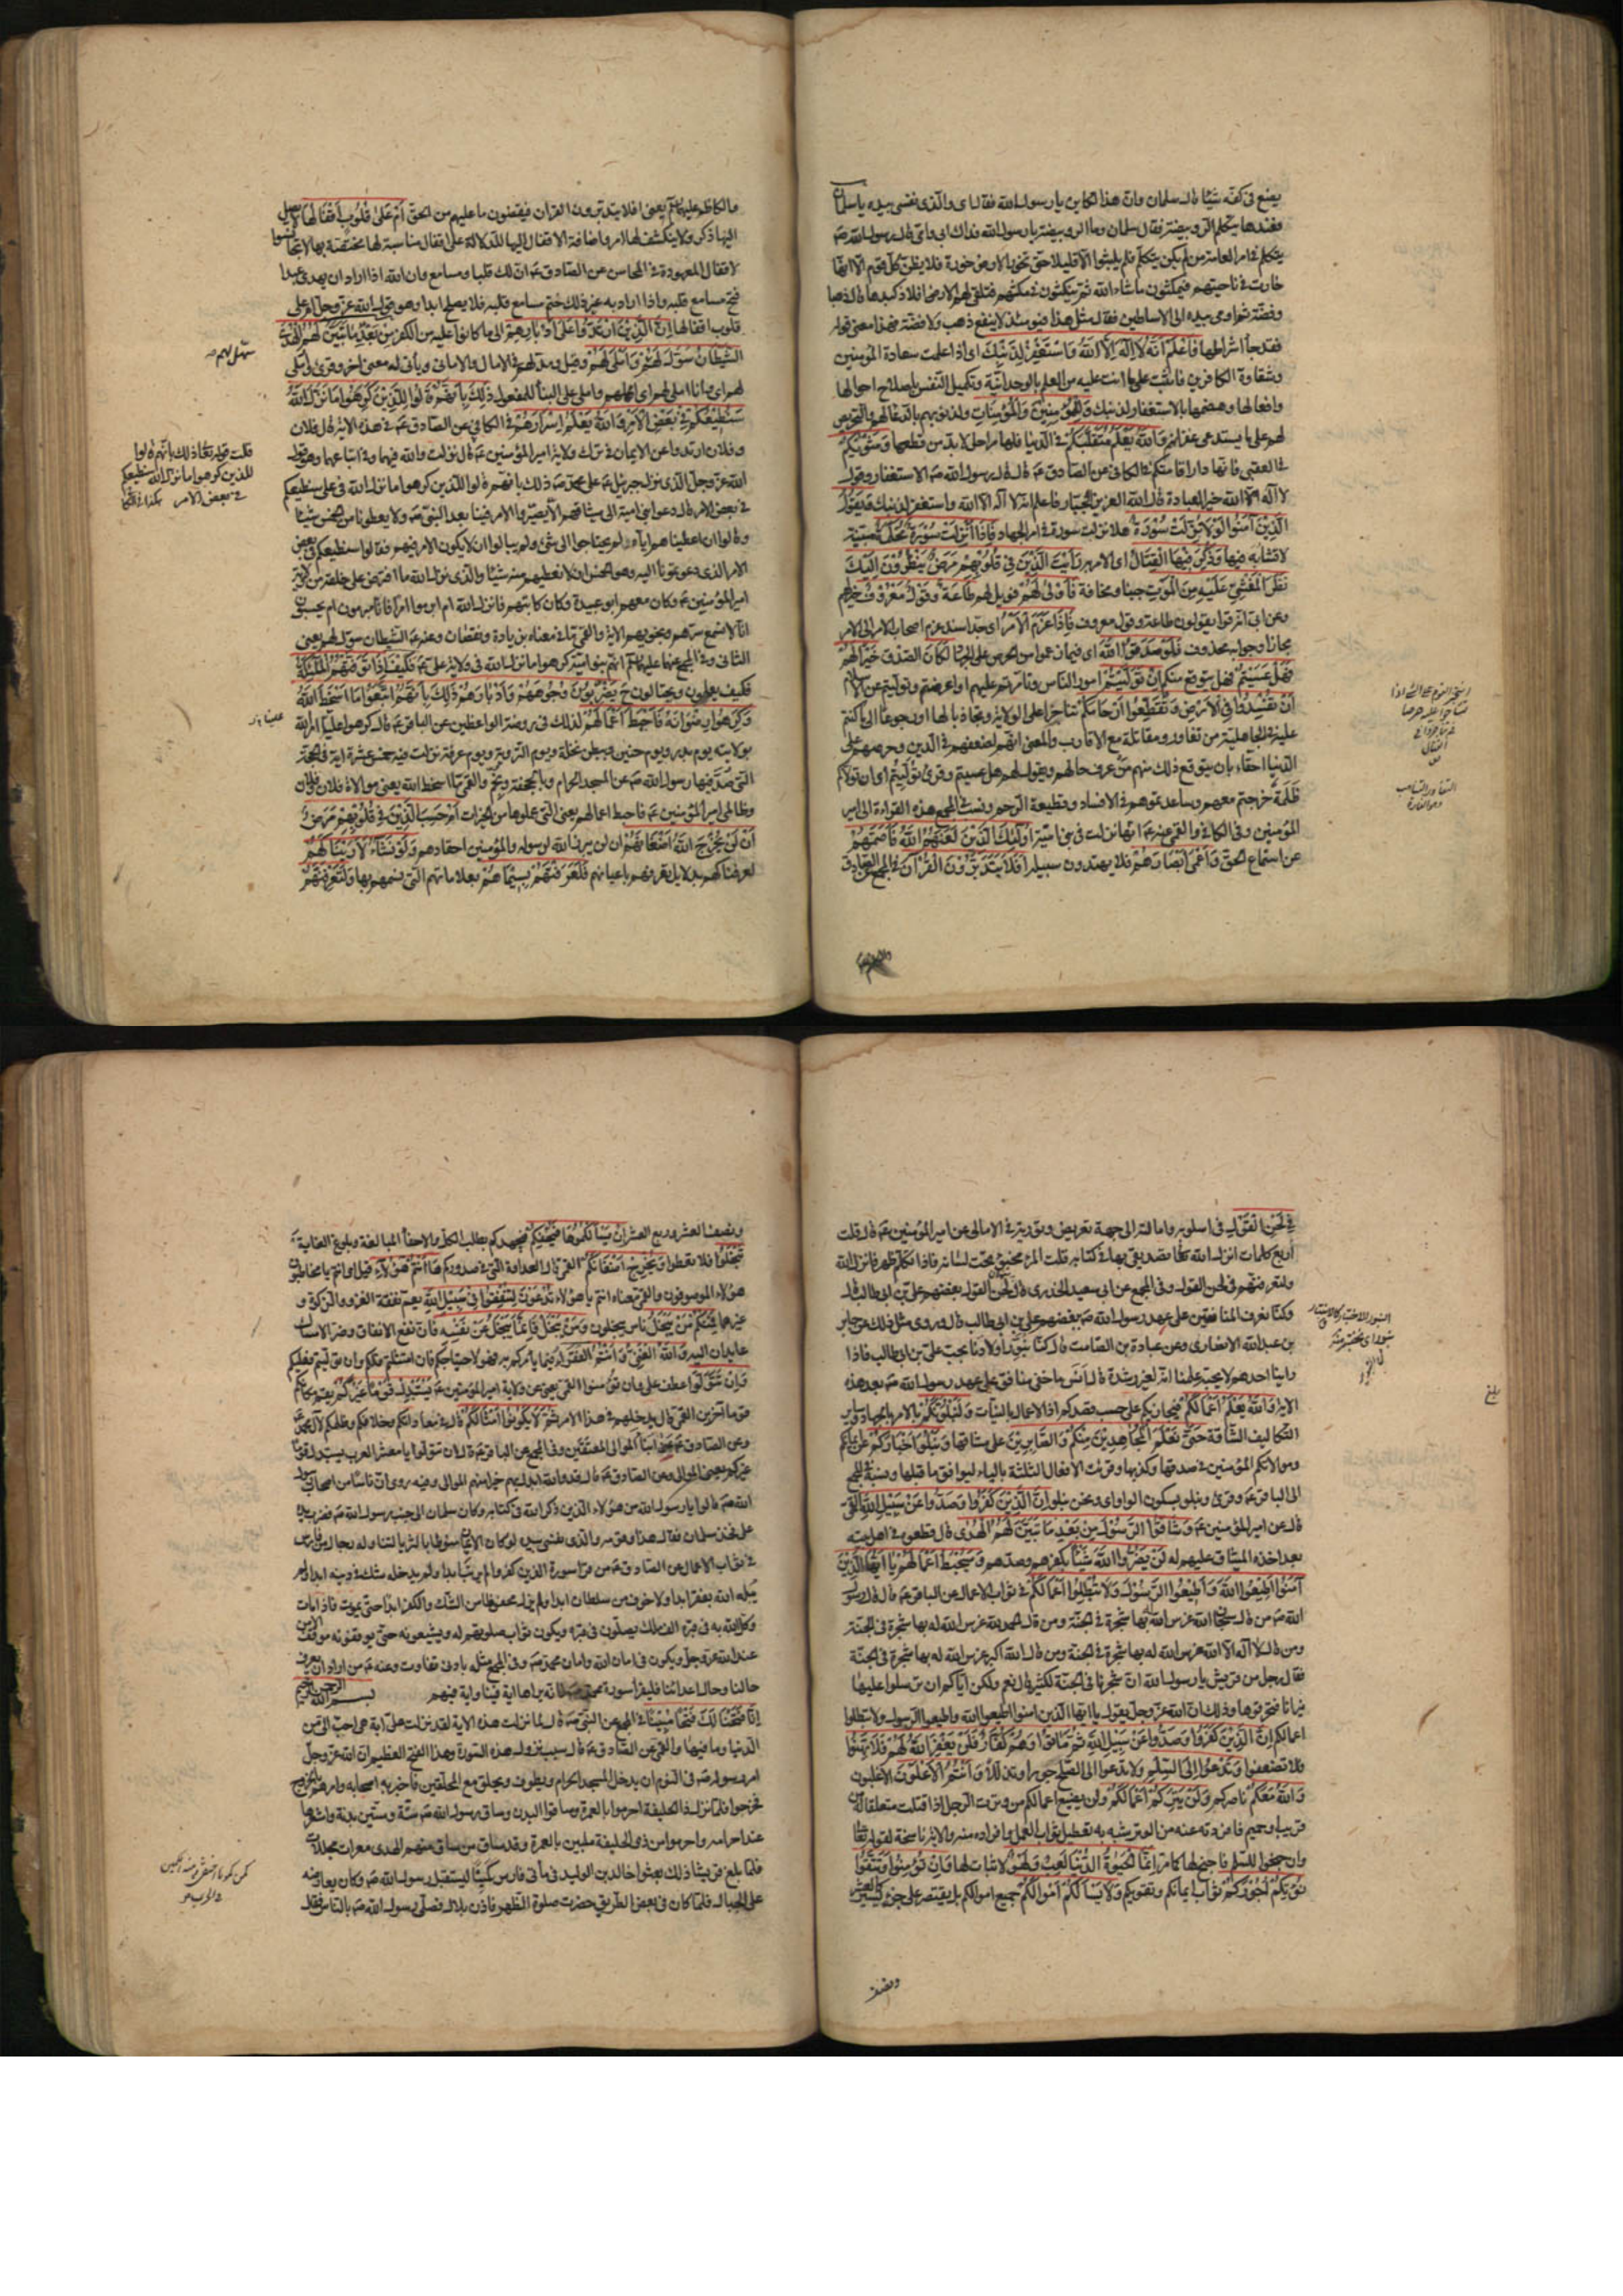 يضع في كفه شيئا قال سلمان وان هذا لكاين يا رسول الله فقال اي والذي نفسي بيده يا سلمان
فعندها يتكلم الروبيضة فقال سلمان وما الروبيضة يا رسول الله فداك ابي وامي قال رسول الله ص
يتكلم في امر العامة من لم يكن يتكلم فلم يلبثوا الا قليلا حتى تخور الارض خورة فلا يظن كل قوم الا انها
خارت في ناحيتهم فيمكثون ما شاء الله ثم ينكتون في مكثهم فتلقي لهم الارض افلاذ كبدها قال ذهبا
وفضة ثم اومى بيده الى الاساطين فقال مثل هذا فيومئذ لا ينفع ذهب ولا فضة فهذا معنى قوله
فقد جاء اشراطها فَاعْلَمْ أَنَّهُ لَا إِلَهَ إِلَّا اللَّهُ وَاسْتَغْفِرْ لِذَنْبِكَ اى اذا علمت سعادة المؤمنين
وشقاوة الكافرين فاثبت على ما انت عليه من العلم بالوحدانية وتكميل النفس باصلاح احوالها
وافعالها وهضمها بالاستغفار لذنبك وَلِلْمُؤْمِنِينَ وَالْمُؤْمِنَاتِ ولذنوبهم بالدعاء لهم والتحريص
لهم على ما يستدعي غفرانهم وَاللَّهُ يَعْلَمُ مُتَقَلَّبَكُمْ في الدنيا فانها مراحل لا بد من قطعها وَمَثْوَيكُمْ
في العقبى فانها دار اقامتكم في الكافي عن الصادق ع قال قال رسول الله ص الاستغفار وقول
لا اله الا الله خير العبادة قال الله العزيز الجبار فاعلم انه لا اله الا الله واستغفر لذنبك وَيَقُولُ
الَّذِينَ آمَنُوا لَوْلَا نُزِّلَتْ سُورَةٌ هلا نزلت سورة في امر الجهاد فَإِذَا أُنْزِلَتْ سُورَةٌ مُحْكَمَةٌ مبينة
لا تشابه فيها وَذُكِرَ فِيهَا الْقِتَالُ اى الامر به رَأَيْتَ الَّذِينَ فِي قُلُوبِهِمْ مَرَضٌ يَنْظُرُونَ إِلَيْكَ
نَظَرَ الْمَغْشِيِّ عَلَيْهِ مِنَ الْمَوْتِ جبنا ومخافة فَأَوْلَى لَهُمْ فويل لهم طَاعَةٌ وَقَوْلٌ مَعْرُوفٌ خير لهم
وعن ابي انه قرأ يقولون طاعة وقول معروف فَإِذَا عَزَمَ الْأَمْرُ اى جد اسند عزم اصحاب الامر الى الامر
مجازا وجوابه محذوف فَلَوْ صَدَقُوا اللَّهَ اى فيما زعموا من الحرص على الجهاد لَكَانَ الصدق خَيْرًا لَهُمْ
فَهَلْ عَسَيْتُمْ فهل يتوقع منكم إِنْ تَوَلَّيْتُمْ امور الناس وتامرتم عليهم او اعرضتم وتوليتم عن الاسلام
أَنْ تُفْسِدُوا فِي الْأَرْضِ وَتُقَطِّعُوا أَرْحَامَكُمْ تناحرا على الولاية وتجاذبا لها او رجوعا الى ما كنتم
عليه في الجاهلية من تغاور ومقاتلة مع الاقارب والمعنى انهم لضعفهم في الدين وحرصهم على
الدنيا احقاء بان يتوقع ذلك منهم من عرف حالهم ويقول لهم هل عسيتم وقرئ تُوُلِّيتُمْ اى ان تولاكم
ظلمة خرجتم معهم وساعدتموهم في الافساد وقطيعة الرحم ونسب في المجمع هذه القراءة الى امير
المؤمنين وفي الكافي والقمي عنه ع انها نزلت في بني امية أُولَئِكَ الَّذِينَ لَعَنَهُمُ اللَّهُ فَأَصَمَّهُمْ
عن استماع الحق وَأَعْمَى أَبْصَارَهُمْ فلا يهتدون سبيله أَفَلَا يَتَدَبَّرُونَ الْقُرْآنَ في المجمع عن الصادق
والكاظم عليهما السلام يعني افلا يتدبرون القران فيقضون ما عليهم من الحق أَمْ عَلَى قُلُوبٍ أَقْفَالُهَا لا يصل
اليها ذكر ولا ينكشف لها امر واضافة الاقفال اليها للدلالة على اقفال مناسبة لها مختصة بها لا تجانس
الاقفال المعهودة في المحاسن عن الصادق ع ان لك قلبا ومسامع وان الله اذا اراد ان يهدي عبدا
فتح مسامع قلبه واذا اراد به غير ذلك ختم مسامع قلبه فلا يصلح ابدا وهو قول الله عز وجل ام على
قلوب اقفالها إِنَّ الَّذِينَ ارْتَدُّوا عَلَى أَدْبَارِهِمْ الى ما كانوا عليه من الكفر مِنْ بَعْدِ مَا تَبَيَّنَ لَهُمُ الْهُدَى
الشَّيْطَانُ سَوَّلَ لَهُمْ وَأَمْلَى لَهُمْ وقيل ومد لهم في الامال والاماني وياتي له معنى اخر وقرئ واملي
لهم اى وانا املي لهم اى امهلهم واملي على البناء للمفعول ذَلِكَ بِأَنَّهُمْ قَالُوا لِلَّذِينَ كَرِهُوا مَا نَزَّلَ اللَّهُ
سَنُطِيعُكُمْ فِي بَعْضِ الْأَمْرِ وَاللَّهُ يَعْلَمُ إِسْرَارَهُمْ في الكافي عن الصادق ع في هذه الاية قال فلان
وفلان ارتدوا عن الايمان في ترك ولاية امير المؤمنين ع قال نزلت والله فيهما وفي اتباعهما وهو قول
الله عز وجل الذي نزل به جبرئيل ع على محمد ص ذلك بانهم قالوا للذين كرهوا ما نزل الله في علي سنطيعكم
في بعض الامر قال دعوا بني امية الى ميثاقهم الا يصيروا الامر فينا بعد النبي ص ولا يعطونا من الخمس شيئا
وقالوا ان اعطيناهم اياه لم يحتاجوا الى شئ ولم يبالوا ان لا يكون الامر فيهم فقالوا سنطيعكم في بعض
الامر الذي دعوتمونا اليه وهو الخمس ان لا نعطيهم منه شيئا والذي نزل الله ما افترض على خلقه من ولاية
امير المؤمنين ع وكان معهم ابو عبيدة وكان كاتبهم فانزل الله ام ابرموا امرا فانا مبرمون ام يحسبون
انا لا نسمع سرهم ونجويهم الاية والقمي ما في معناه بزيادة ونقصان وعنه ع الشيطان سول لهم يعني
الثاني وفي المجمع عنهما عليهما السلام انهم بنو امية كرهوا ما نزل الله في ولاية علي ع فَكَيْفَ إِذَا تَوَفَّتْهُمُ الْمَلَائِكَةُ
فكيف يعملون ويحتالون ح يَضْرِبُونَ وُجُوهَهُمْ وَأَدْبَارَهُمْ ذَلِكَ بِأَنَّهُمُ اتَّبَعُوا مَا أَسْخَطَ اللَّهَ
وَكَرِهُوا رِضْوَانَهُ فَأَحْبَطَ أَعْمَالَهُمْ لذلك في روضة الواعظين عن الباقر ع قال كرهوا عليا امر الله
بولايته يوم بدر ويوم حنين وببطن نخلة ويوم التروية ويوم عرفة نزلت فيه خمس عشرة اية في الحجة
التي صد فيها رسول الله ص عن المسجد الحرام وبالجحفة وبخم والقمي ما اسخط الله يعني موالاة فلان وفلان
وظالمي امير المؤمنين ع فاحبط اعمالهم يعني التي عملوها من الخيرات أَمْ حَسِبَ الَّذِينَ فِي قُلُوبِهِمْ مَرَضٌ
أَنْ لَنْ يُخْرِجَ اللَّهُ أَضْغَانَهُمْ ان لن يبرز الله لرسوله والمؤمنين احقادهم وَلَوْ نَشَاءُ لَأَرَيْنَاكَهُمْ
لعرفناكهم بدلايل تعرفهم باعيانهم فَلَعَرَفْتَهُمْ بِسِيمَاهُمْ بعلاماتهم التي نسمهم بها وَلَتَعْرِفَنَّهُمْ
سهل لهم ص
قلت قوله تعالى ذلك بانهم قالوا
للذين كرهوا ما نزل الله سنطيعكم
في بعض الامر
فِي لَحْنِ الْقَوْلِ في اسلوبه وامالته الى جهة تعريض وتورية في الامالي عن امير المؤمنين ع قال قلت
اربع كلمات انزل الله تعالى تصديقي بها في كتابه قلت المرء مخبوء تحت لسانه فاذا تكلم ظهر فانزل الله
ولتعرفنهم في لحن القول وفي المجمع عن ابي سعيد الخدري قال لحن القول بغضهم علي بن ابي طالب قال
وكنا نعرف المنافقين على عهد رسول الله ص ببغضهم علي بن ابي طالب قال وروي مثل ذلك عن جابر
بن عبد الله الانصاري وعن عبادة بن الصامت قال كنا نبور اولادنا بحب علي بن ابي طالب فاذا
راينا احدهم لا يحبه علمنا انه لغير رشدة قال انس ما خفي منافق على عهد رسول الله ص بعد هذه
الاية وَاللَّهُ يَعْلَمُ أَعْمَالَكُمْ فيجازيكم على حسب قصدكم اذ الاعمال بالنيات وَلَنَبْلُوَنَّكُمْ بالامر بالجهاد وساير
التكاليف الشاقة حَتَّى نَعْلَمَ الْمُجَاهِدِينَ مِنْكُمْ وَالصَّابِرِينَ على مشاقها وَنَبْلُوَ أَخْبَارَكُمْ عن ايمانكم
وموالاتكم المؤمنين في صدقها وكذبها وقرئت الافعال الثلثة بالياء ليوافق ما قبلها ونسبه في المجمع
الى الباقر ع وقرئ ونبلو بسكون الواو اى ونحن نبلو إِنَّ الَّذِينَ كَفَرُوا وَصَدُّوا عَنْ سَبِيلِ اللَّهِ القمي
قال عن امير المؤمنين ع وَشَاقُّوا الرَّسُولَ مِنْ بَعْدِ مَا تَبَيَّنَ لَهُمُ الْهُدَى قال قطعوه في اهل بيته
بعد اخذه الميثاق عليهم له لَنْ يَضُرُّوا اللَّهَ شَيْئًا بكفرهم وصدهم وَسَيُحْبِطُ أَعْمَالَهُمْ يَا أَيُّهَا الَّذِينَ
آمَنُوا أَطِيعُوا اللَّهَ وَأَطِيعُوا الرَّسُولَ وَلَا تُبْطِلُوا أَعْمَالَكُمْ في ثواب الاعمال عن الباقر ع قال قال رسول
الله ص من قال سبحان الله غرس الله له بها شجرة في الجنة ومن قال الحمد لله غرس الله له بها شجرة في الجنة
ومن قال لا اله الا الله غرس الله له بها شجرة في الجنة ومن قال الله اكبر غرس الله له بها شجرة في الجنة
فقال رجل من قريش يا رسول الله ان شجرنا في الجنة لكثير قال نعم ولكن اياكم ان ترسلوا عليها
نيرانا فتحرقوها وذلك ان الله عز وجل يقول يا ايها الذين امنوا اطيعوا الله واطيعوا الرسول ولا تبطلوا
اعمالكم إِنَّ الَّذِينَ كَفَرُوا وَصَدُّوا عَنْ سَبِيلِ اللَّهِ ثُمَّ مَاتُوا وَهُمْ كُفَّارٌ فَلَنْ يَغْفِرَ اللَّهُ لَهُمْ فَلَا تَهِنُوا
فلا تضعفوا وَتَدْعُوا إِلَى السَّلْمِ ولا تدعوا الى الصلح خورا وتذللا وَأَنْتُمُ الْأَعْلَوْنَ الاغلبون
وَاللَّهُ مَعَكُمْ ناصركم وَلَنْ يَتِرَكُمْ أَعْمَالَكُمْ ولن يضيع اعمالكم من وترت الرجل اذا قتلت متعلقا له من
قريب او حميم فافردته عنه من الوتر شبه به تعطيل ثواب العمل وافراده منه والاية ناسخة لقوله تعالى
وان جنحوا للسلم فاجنح لها كما مر إِنَّمَا الْحَيَوةُ الدُّنْيَا لَعِبٌ وَلَهْوٌ لا ثبات لها وَإِنْ تُؤْمِنُوا وَتَتَّقُوا
يُؤْتِكُمْ أُجُورَكُمْ ثواب ايمانكم وتقويكم وَلَا يَسْأَلْكُمْ أَمْوَالَكُمْ جميع اموالكم بل يقتصر على جزء يسير كالعشر
ونصف
بلغ
ونصف العشر وربع العشر إِنْ يَسْأَلْكُمُوهَا فَيُحْفِكُمْ فيجهدكم بطلب الكل والاحفاء المبالغة وبلوغ الغاية
تَبْخَلُوا فلا تعطوا وَيُخْرِجْ أَضْغَانَكُمْ القمي قال العداوة التي في صدوركم هَا أَنْتُمْ هَؤُلَاءِ قيل اى انتم يا مخاطبون
هؤلاء الموصوفون والقمي معناه انتم يا هؤلاء تُدْعَوْنَ لِتُنْفِقُوا فِي سَبِيلِ اللَّهِ يعم نفقة الغزو والزكوة و
غيرهما فَمِنْكُمْ مَنْ يَبْخَلُ ناس يبخلون وَمَنْ يَبْخَلْ فَإِنَّمَا يَبْخَلُ عَنْ نَفْسِهِ فان نفع الانفاق وضر الامساك
عايدان اليه وَاللَّهُ الْغَنِيُّ وَأَنْتُمُ الْفُقَرَاءُ فما يامركم به فهو لاحتياجكم فان امتثلتم فلكم وان توليتم فعليكم
وَإِنْ تَتَوَلَّوْا عطف على وان تؤمنوا القمي يعني عن ولاية امير المؤمنين ع يَسْتَبْدِلْ قَوْمًا غَيْرَكُمْ يقم مكانكم
قوما اخرين القمي قال يدخلهم في هذا الامر ثُمَّ لَا يَكُونُوا أَمْثَالَكُمْ قال في معاداتكم وخلافكم وظلمكم لال محمد
وعن الصادق ع يعني ابناء الموالي المعتقين وفي المجمع عن الباقر ع قال ان تتولوا يا معشر العرب يستبدل قوما
غيركم يعني الموالي وعن الصادق ع قال قد والله ابدل بهم خيرا منهم الموالي وفيه روي ان ناسا من اصحاب رسول
الله ص قالوا يا رسول الله من هؤلاء الذين ذكر الله في كتابه وكان سلمان الى جنب رسول الله ص فضرب يده
على فخذ سلمان فقال هذا وقومه والذي نفسي بيده لو كان الايمان منوطا بالثريا لتناوله رجال من فارس
في ثواب الاعمال عن الصادق ع من قرأ سورة الذين كفروا لم يرتب ابدا ولم يدخله شك في دينه ابدا ولم
يبتله الله بفقر ابدا ولا خوف من سلطان ابدا ولم يزل محفوظا من الشك والكفر ابدا حتى يموت فاذا مات
وكل الله به في قبره الف ملك يصلون في قبره ويكون ثواب صلوتهم له ويشيعونه حتى يوقفونه موقف الامن
عند الله عز وجل ويكون في امان الله وامان محمد ص وفي المجمع مثله بادنى تفاوت وعنه ع من اراد ان يعرف
حالنا وحال اعدائنا فليقرأ سورة محمد ص فانه يراها اية فينا واية فيهم
بسم الله الرحمن الرحيم
إِنَّا فَتَحْنَا لَكَ فَتْحًا مُبِينًا في المجمع عن النبي ص قال لما نزلت هذه الاية لقد نزلت علي اية هي احب الي من
الدنيا وما فيها والقمي عن الصادق ع قال سبب نزول هذه السورة وهذا الفتح العظيم ان الله عز وجل
امر رسوله ص في النوم ان يدخل المسجد الحرام ويطوف ويحلق مع المحلقين فاخبر به اصحابه وامرهم بالخروج
فخرجوا فلما نزل ذا الحليفة احرموا بالعمرة وساقوا البدن وساق رسول الله ص ستة وستين بدنة واشعرها
عند احرامه واحرموا من ذي الحليفة ملبين بالعمرة وقد ساق من ساق منهم الهدي معرات مجللات
فلما بلغ قريشا ذلك بعثوا خالد بن الوليد في مأتي فارس كمينا ليستقبل رسول الله ص فكان يعارضه
على الجبال فلما كان في بعض الطريق حضرت صلوة الظهر فاذن بلال فصلى رسول الله ص بالناس فقال